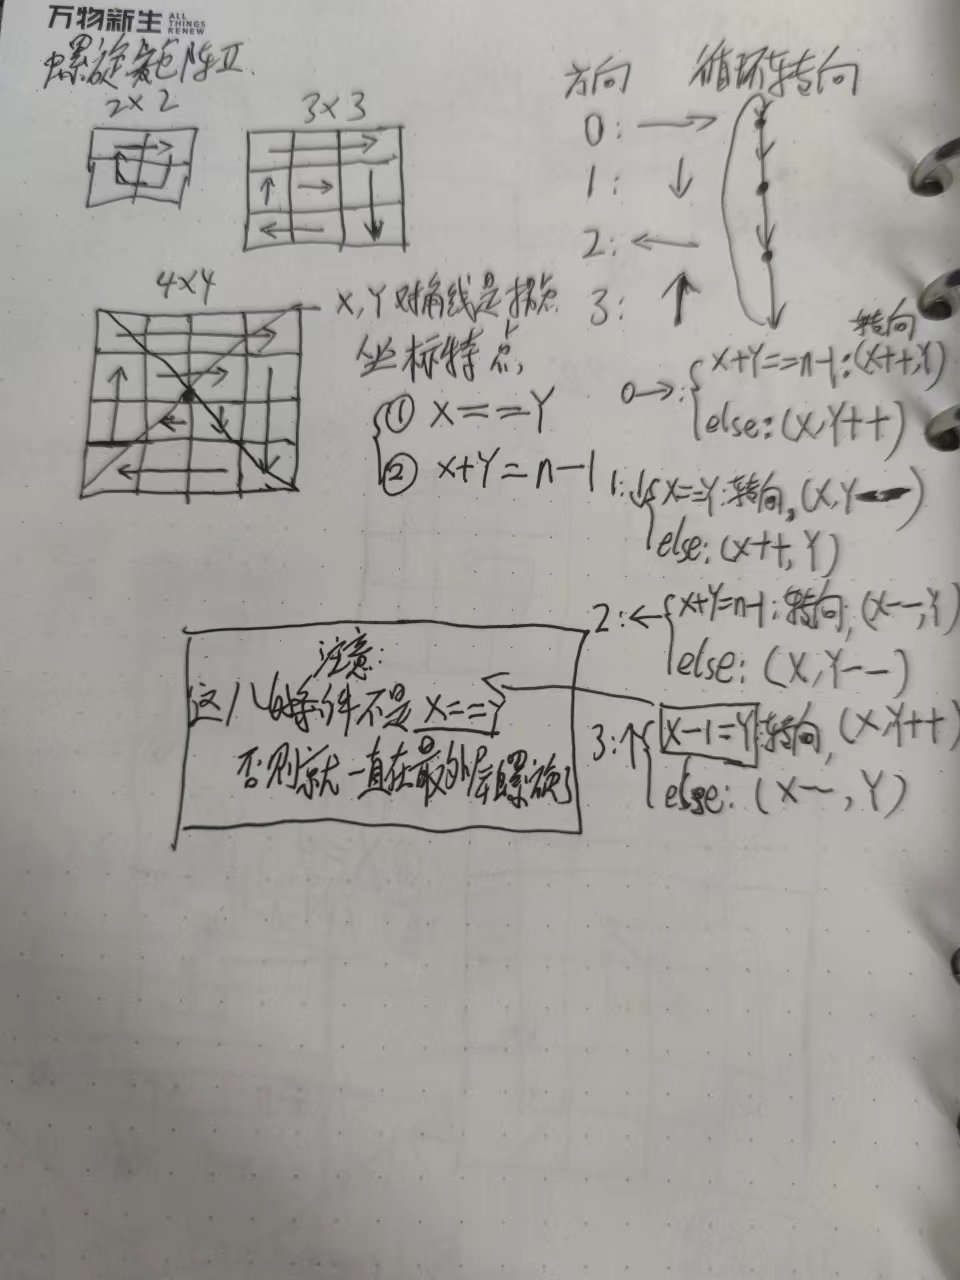 万物新生 ALL THINGS RENEW
螺旋矩阵II.
2×2
3×3
4×4
X,Y对角线是拐点
坐标特点,
① X==Y
② X+Y=n-1
方向 循环转向
0: →
1: ↓
2: ←
3: ↑
转向
0→: X+Y==n-1:(X++,Y)
else:(X,Y++)
1:↓ X==Y:转向,(X,Y--)
else:(X++,Y)
2:← X+Y=n-1:转向,(X--,Y)
else:(X,Y--)
3:↑ X-1=Y:转向,(X,Y++)
else:(X--,Y)
注意:
这儿的条件不是X==Y
否则就一直在最外层螺旋了